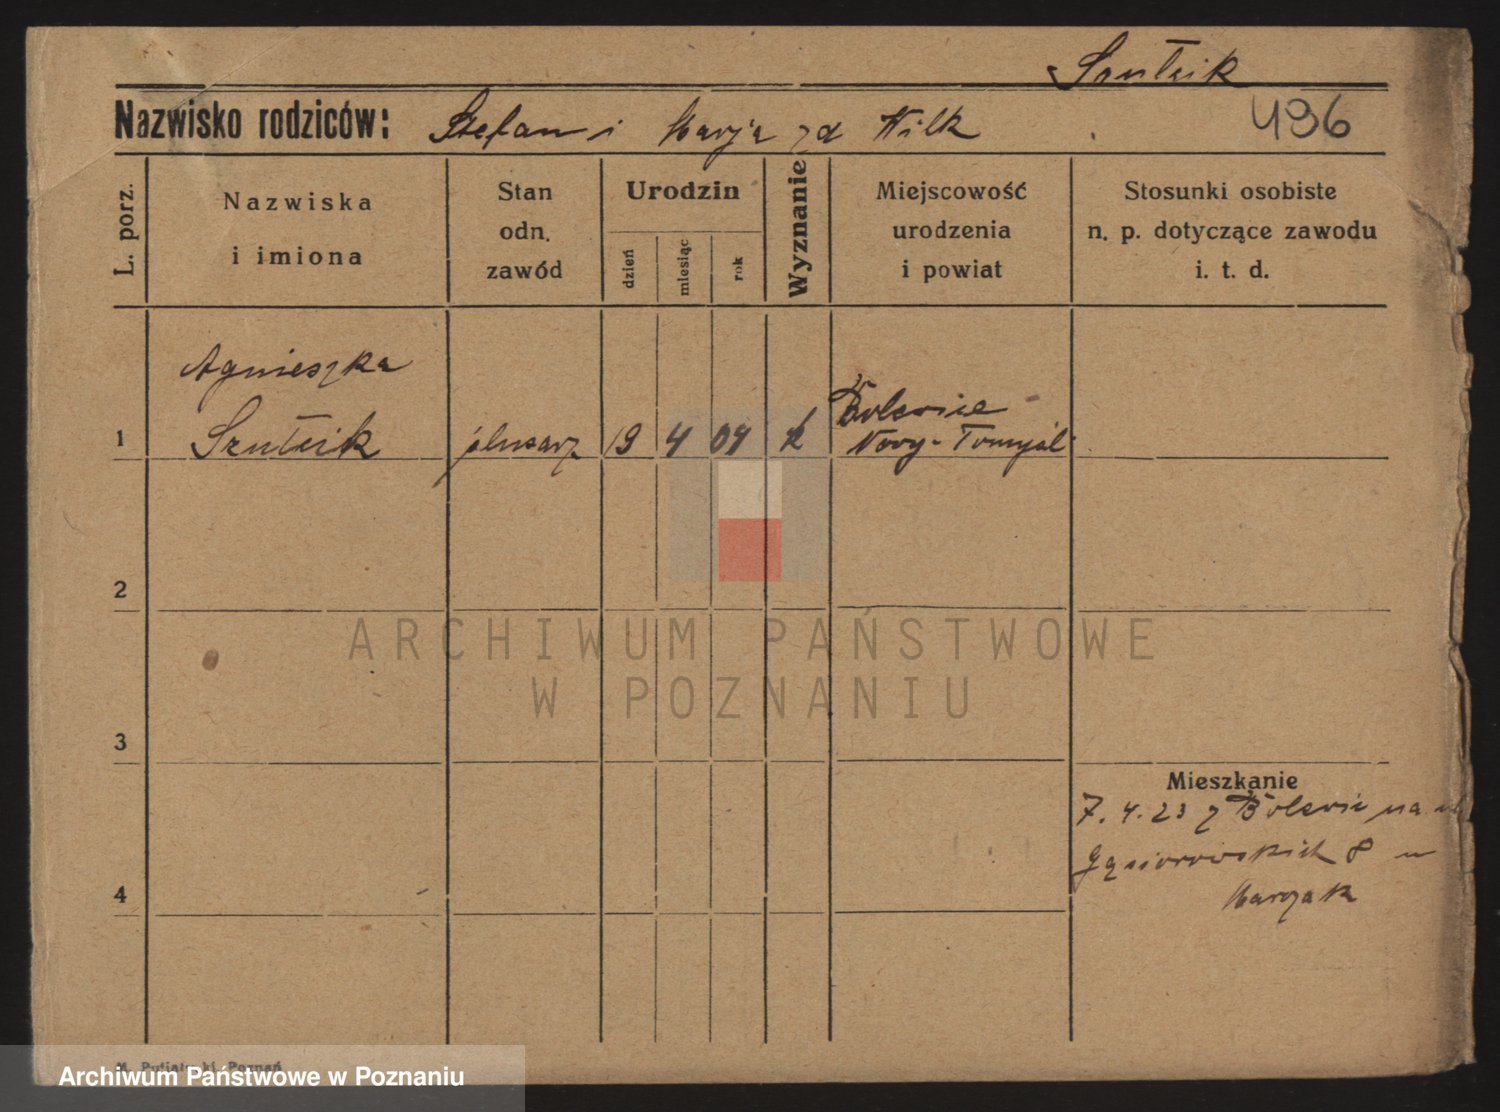 Szulcik
Nazwisko rodziców: Stefan i Marja zd Wilk
496
L. porz.
Nazwiska
i imiona
Stan
odn.
zawód
Urodzin
dzień
miesiąc
rok
Wyznanie
Miejscowość
urodzenia
i powiat
Stosunki osobiste
n. p. dotyczące zawodu
i. t. d.
Agnieszka
1 Szulcik ślusarz 19 4 04 k
Nowy-Tomyśl
2
3
4
Mieszkanie
7.4.23 z na ul
Gąsiorowskich 8 u
Marczak
ARCHIWUM PAŃSTWOWE
W POZNANIU
Poznań
Archiwum Państwowe w Poznaniu